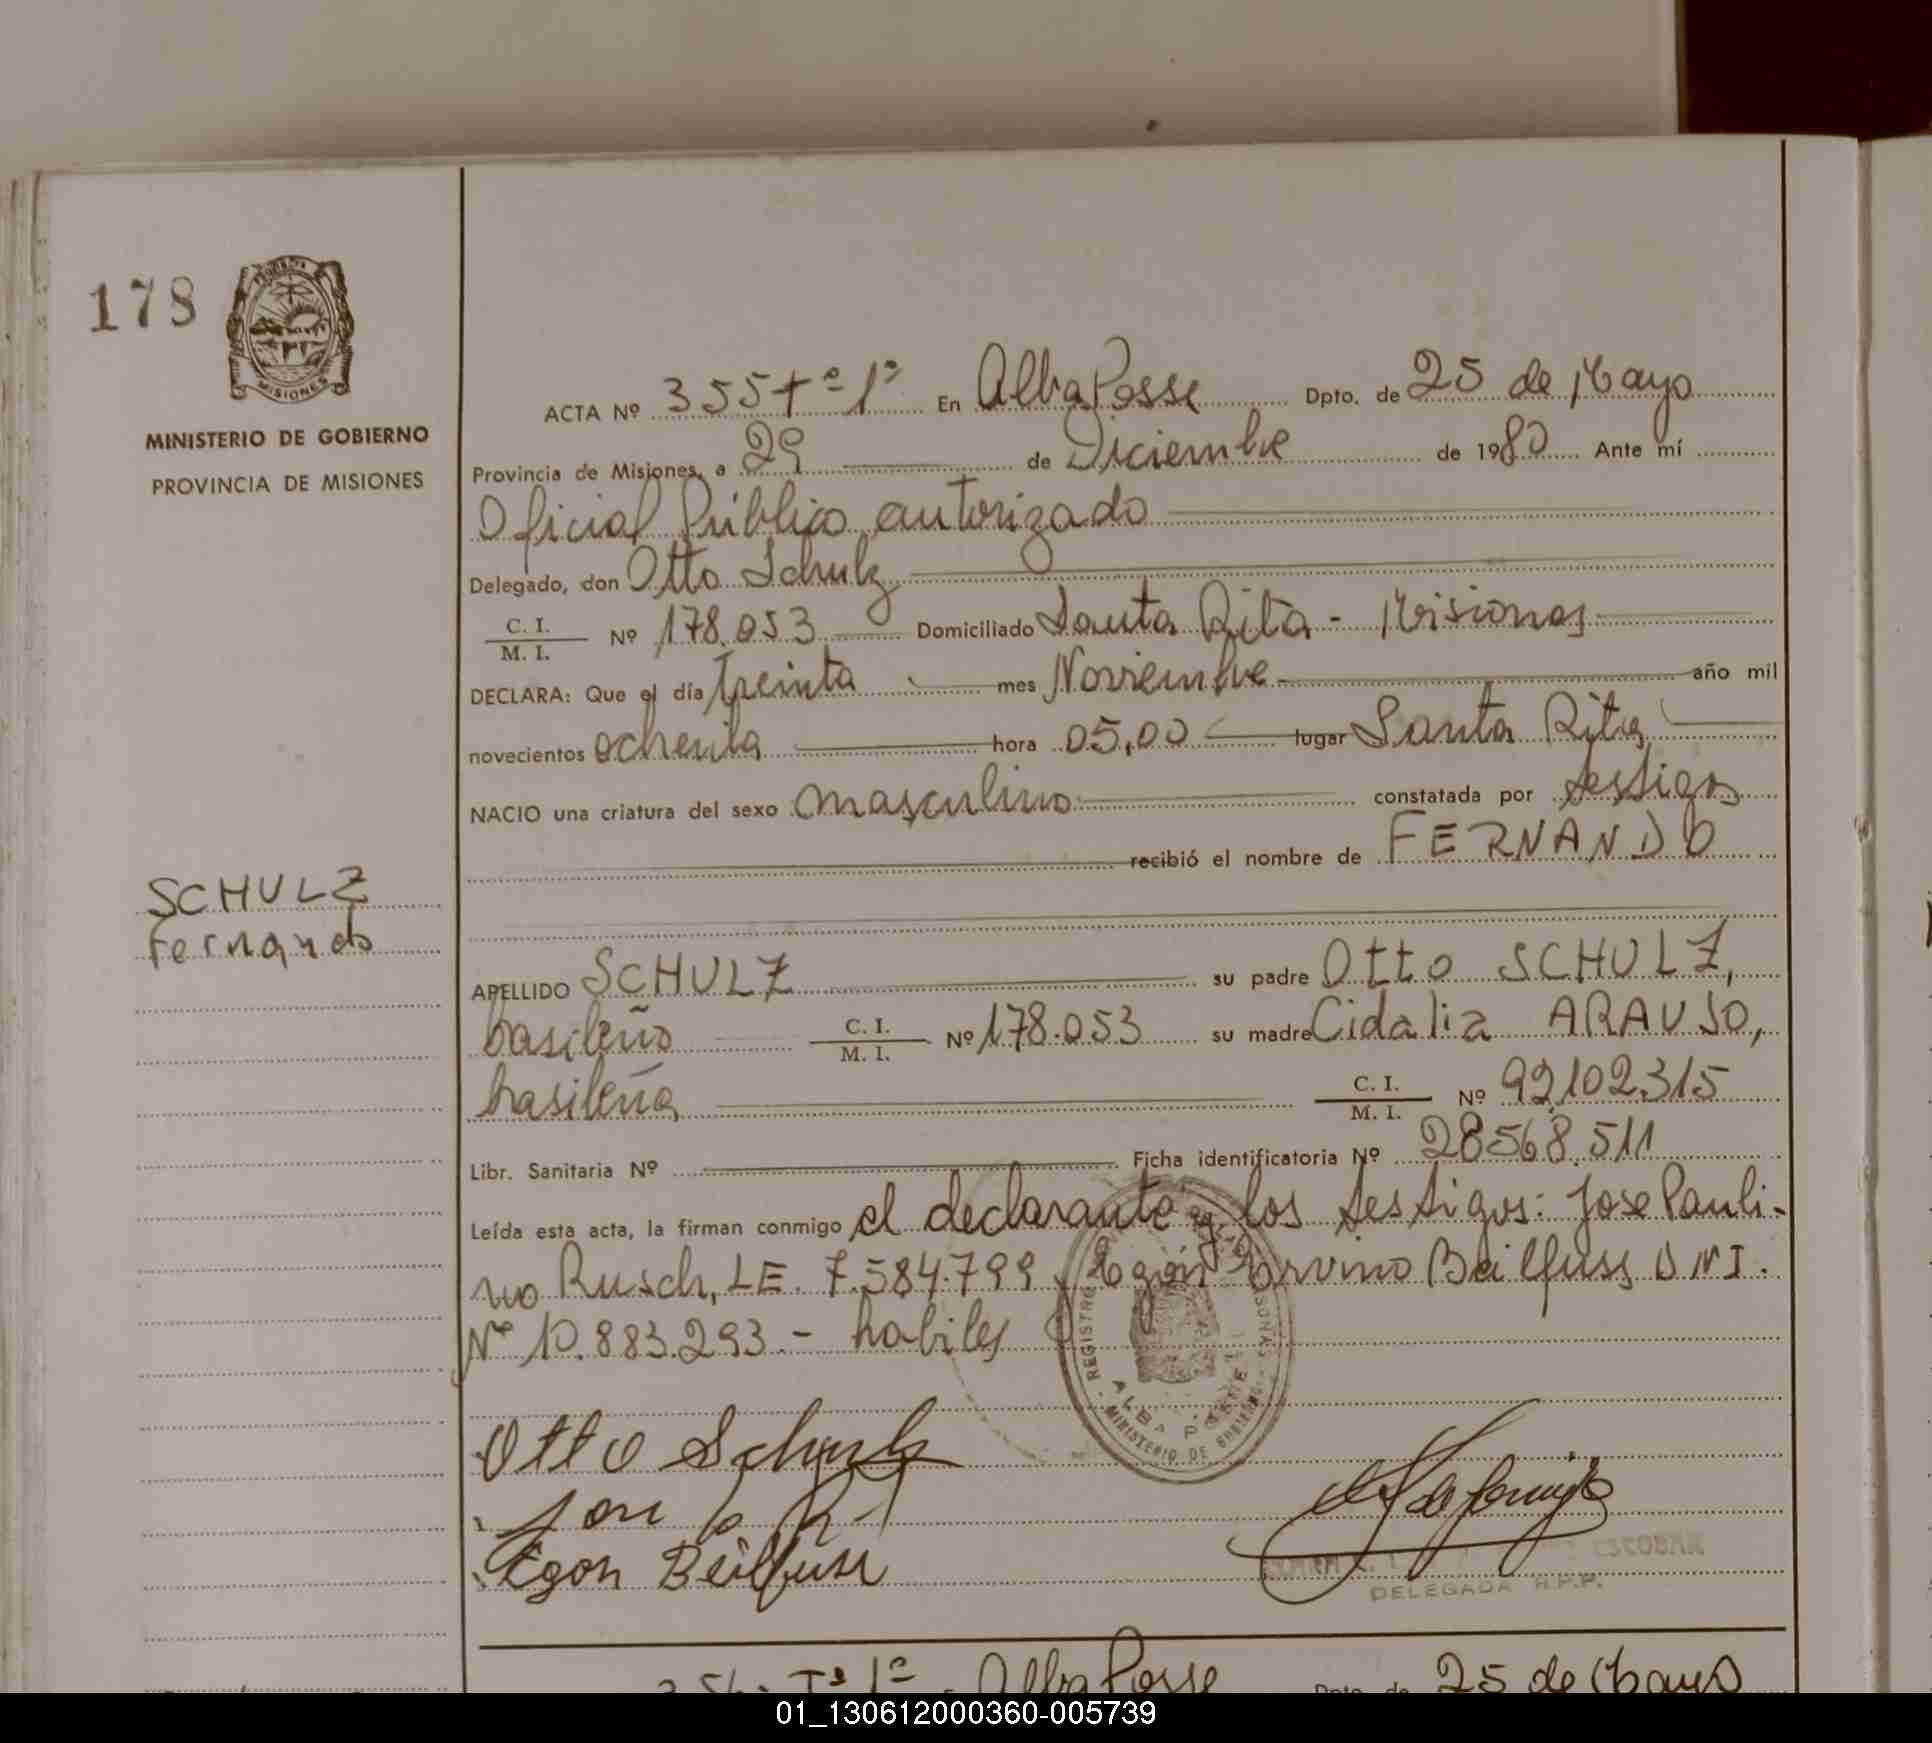 178
MISIONES
MINISTERIO DE GOBIERNO
PROVINCIA DE MISIONES
SCHULZ
Fernando
ACTA Nº 355 Tº 1º En Alba Posse Dpto. de 25 de Mayo
Provincia de Misiones, a 29 de Diciembre de 1980 Ante mí
Oficial Público autorizado
Delegado, don Otto Schulz
C. I.
M. I. Nº 178.053 Domiciliado Santa Rita - Misiones
DECLARA: Que el día treinta mes Noviembre año mil
novecientos ochenta hora 05,00 lugar Santa Rita
NACIO una criatura del sexo masculino constatada por testigos
recibió el nombre de FERNANDO
APELLIDO SCHULZ su padre Otto SCHULZ,
basileño C. I. M. I. Nº 178.053 su madre Cidalia ARAUJO,
basileña C. I. M. I. Nº 92.102.315
Libr. Sanitaria Nº Ficha identificatoria Nº 28568.511
Leída esta acta, la firman conmigo el declarante y los testigos: Jose Pauli-
no Rusch, LE. 7.584.799 y Egon Ervino Beilfuss D N I.
Nº 10.883.293.- habiles
REGISTRO
ALBA POSSE
MINISTERIO DE GOBIERNO
Otto Schulz
Egon Beilfuss
ESCOBAR
DELEGADA R.P.P.
Tº 1º Alba Posse Dpto. de 25 de Mayo
01_130612000360-005739